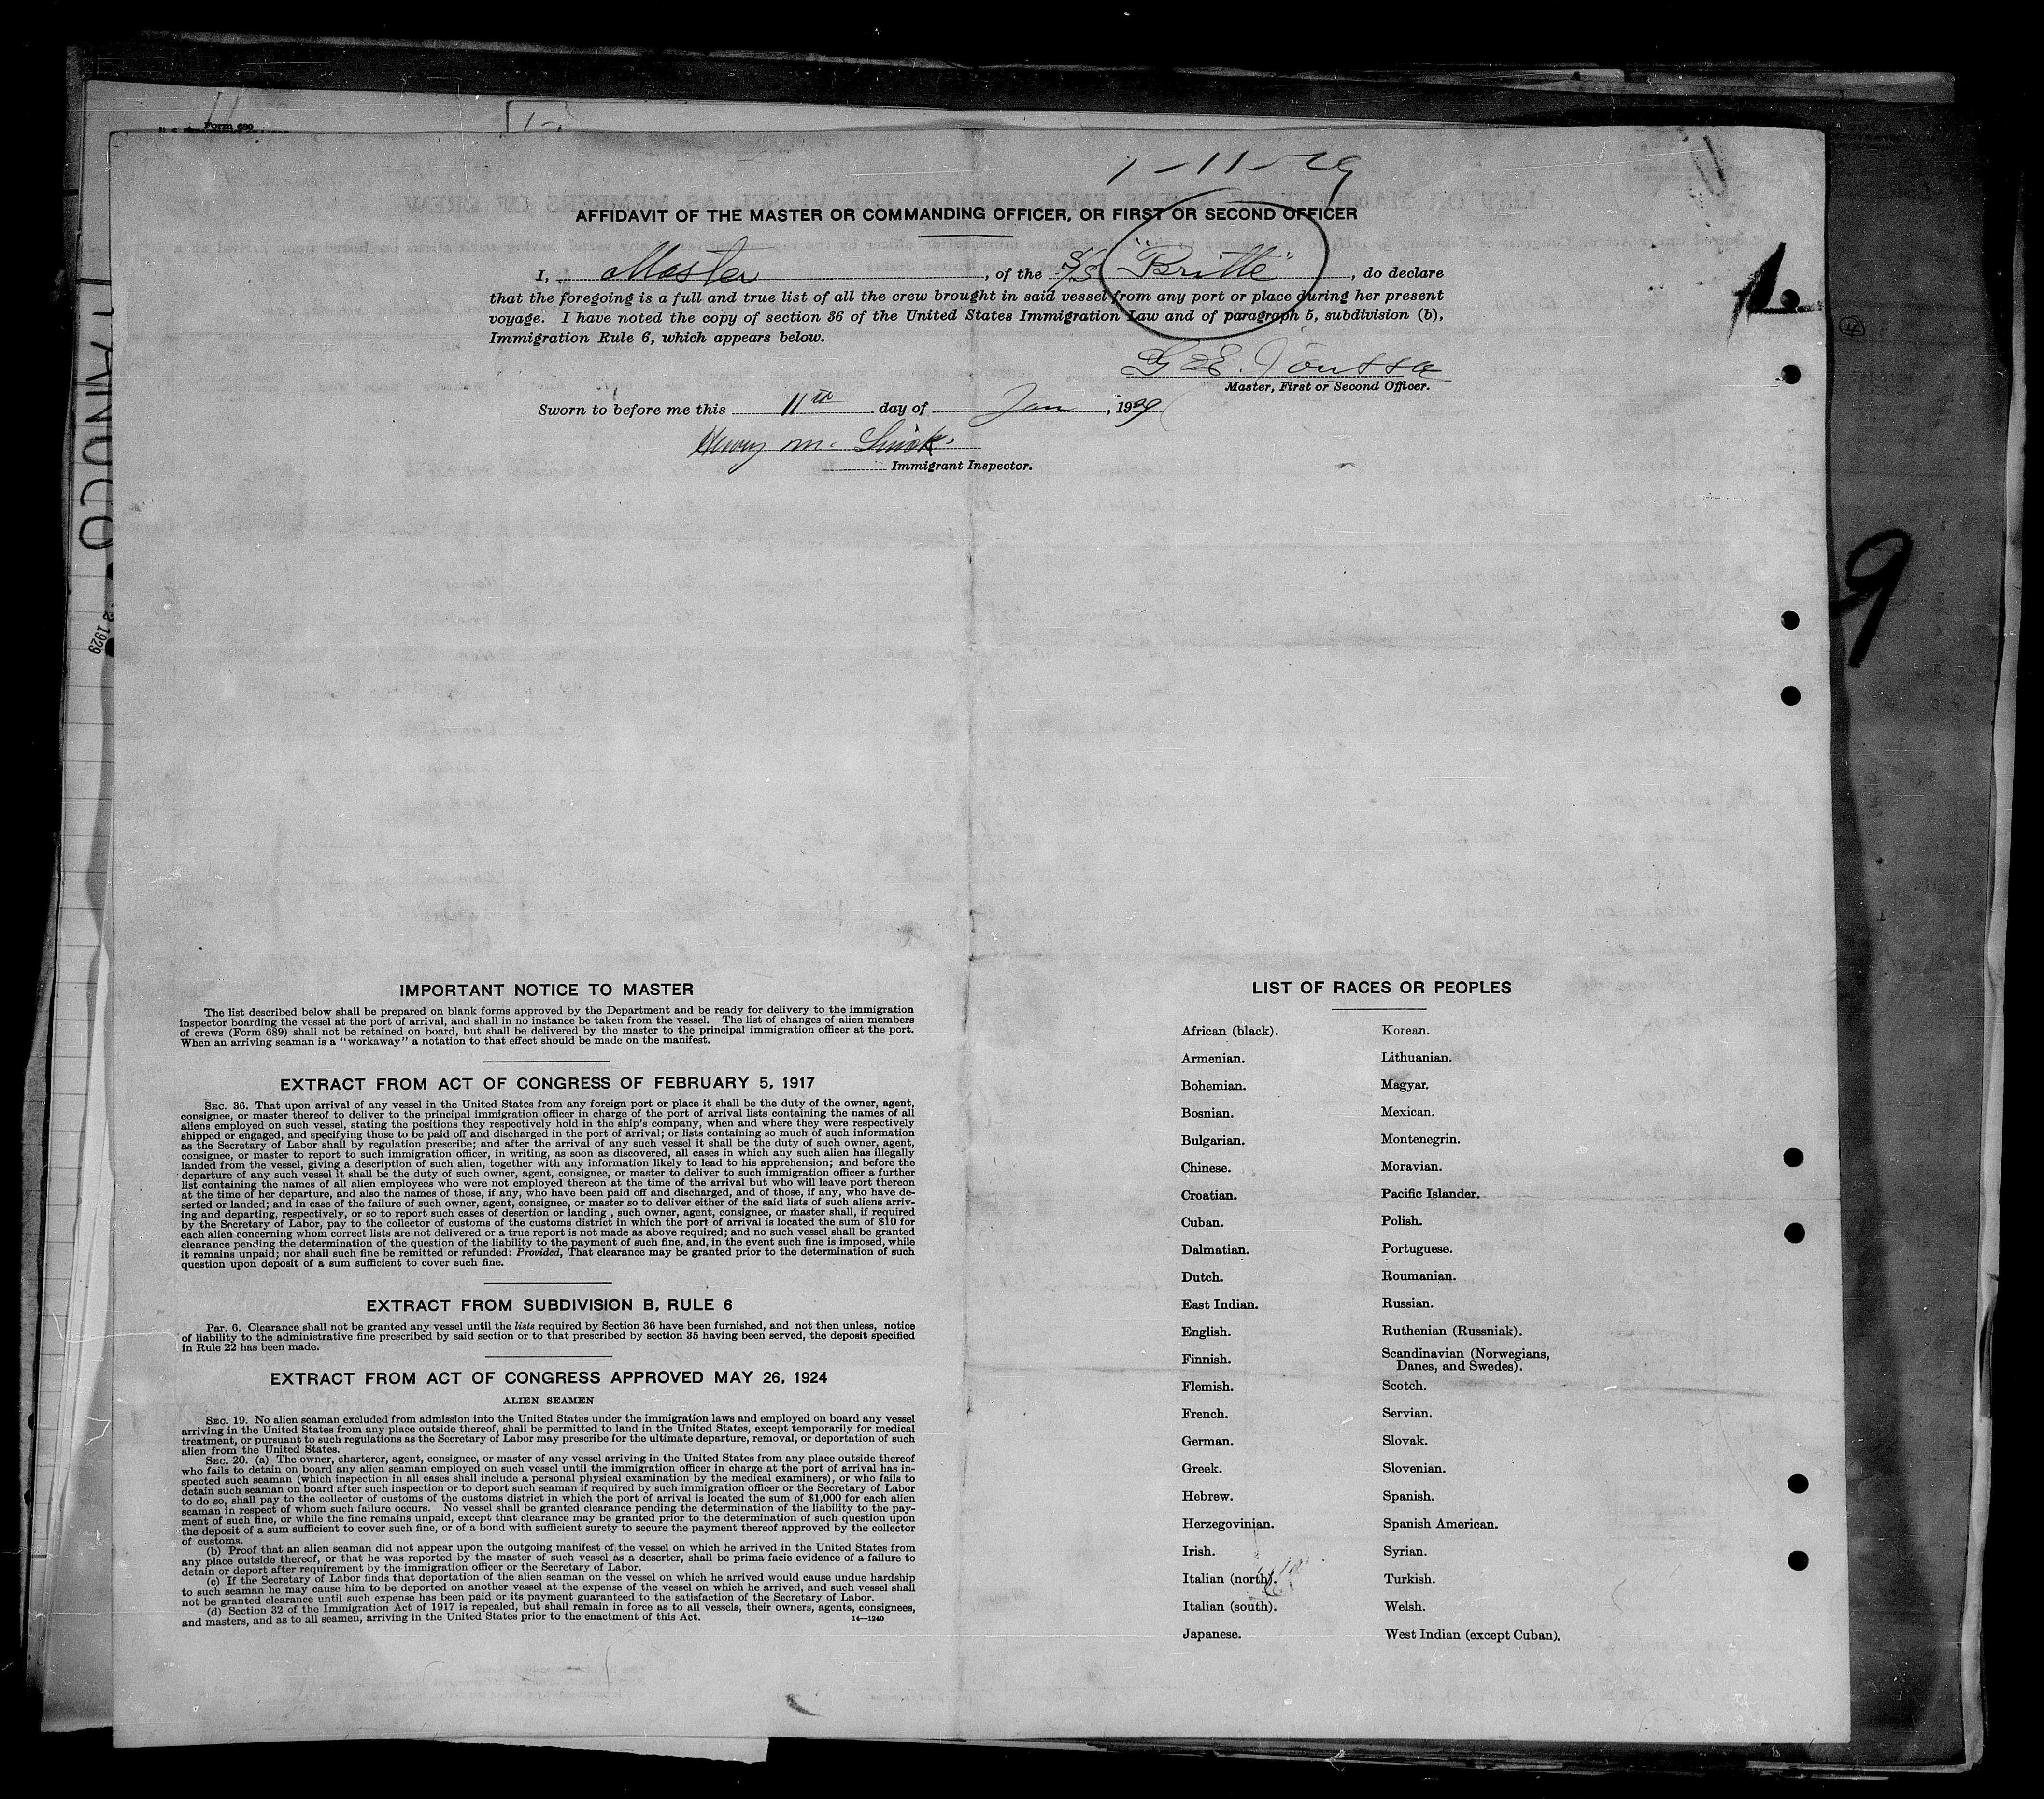 Form 680
1-11-29
AFFIDAVIT OF THE MASTER OR COMMANDING OFFICER, OR FIRST OR SECOND OFFICER
I, Master, of the S/S "Britte", do declare
that the foregoing is a full and true list of all the crew brought in said vessel from any port or place during her present
voyage. I have noted the copy of section 36 of the United States Immigration Law and of paragraph 5, subdivision (b),
Immigration Rule 6, which appears below.
Master, First or Second Officer.
Sworn to before me this 11th day of Jan, 1929
Henry M.
Immigrant Inspector.
2 1929
9
IMPORTANT NOTICE TO MASTER
The list described below shall be prepared on blank forms approved by the Department and be ready for delivery to the immigration
inspector boarding the vessel at the port of arrival, and shall in no instance be taken from the vessel. The list of changes of alien members
of crews (Form 689) shall not be retained on board, but shall be delivered by the master to the principal immigration officer at the port.
When an arriving seaman is a "workaway" a notation to that effect should be made on the manifest.
EXTRACT FROM ACT OF CONGRESS OF FEBRUARY 5, 1917
SEC. 36. That upon arrival of any vessel in the United States from any foreign port or place it shall be the duty of the owner, agent,
consignee, or master thereof to deliver to the principal immigration officer in charge of the port of arrival lists containing the names of all
aliens employed on such vessel, stating the positions they respectively hold in the ship's company, when and where they were respectively
shipped or engaged, and specifying those to be paid off and discharged in the port of arrival; or lists containing so much of such information
as the Secretary of Labor shall by regulation prescribe; and after the arrival of any such vessel it shall be the duty of such owner, agent,
consignee, or master to report to such immigration officer, in writing, as soon as discovered, all cases in which any such alien has illegally
landed from the vessel, giving a description of such alien, together with any information likely to lead to his apprehension; and before the
departure of any such vessel it shall be the duty of such owner, agent, consignee, or master to deliver to such immigration officer a further
list containing the names of all alien employees who were not employed thereon at the time of the arrival but who will leave port thereon
at the time of her departure, and also the names of those, if any, who have been paid off and discharged, and of those, if any, who have de-
serted or landed; and in case of the failure of such owner, agent, consignee, or master so to deliver either of the said lists of such aliens arriv-
ing and departing, respectively, or so to report such cases of desertion or landing, such owner, agent, consignee, or master shall, if required
by the Secretary of Labor, pay to the collector of customs of the customs district in which the port of arrival is located the sum of $10 for
each alien concerning whom correct lists are not delivered or a true report is not made as above required; and no such vessel shall be granted
clearance pending the determination of the question of the liability to the payment of such fine, and, in the event such fine is imposed, while
it remains unpaid; nor shall such fine be remitted or refunded: Provided, That clearance may be granted prior to the determination of such
question upon deposit of a sum sufficient to cover such fine.
EXTRACT FROM SUBDIVISION B, RULE 6
Par. 6. Clearance shall not be granted any vessel until the lists required by Section 36 have been furnished, and not then unless, notice
of liability to the administrative fine prescribed by said section or to that prescribed by section 35 having been served, the deposit specified
in Rule 22 has been made.
EXTRACT FROM ACT OF CONGRESS APPROVED MAY 26, 1924
ALIEN SEAMEN
SEC. 19. No alien seaman excluded from admission into the United States under the immigration laws and employed on board any vessel
arriving in the United States from any place outside thereof, shall be permitted to land in the United States, except temporarily for medical
treatment, or pursuant to such regulations as the Secretary of Labor may prescribe for the ultimate departure, removal, or deportation of such
alien from the United States.
SEC. 20. (a) The owner, charterer, agent, consignee, or master of any vessel arriving in the United States from any place outside thereof
who fails to detain on board any alien seaman employed on such vessel until the immigration officer in charge at the port of arrival has in-
spected such seaman (which inspection in all cases shall include a personal physical examination by the medical examiners), or who fails to
detain such seaman on board after such inspection or to deport such seaman if required by such immigration officer or the Secretary of Labor
to do so, shall pay to the collector of customs of the customs district in which the port of arrival is located the sum of $1,000 for each alien
seaman in respect of whom such failure occurs. No vessel shall be granted clearance pending the determination of the liability to the pay-
ment of such fine, or while the fine remains unpaid, except that clearance may be granted prior to the determination of such question upon
the deposit of a sum sufficient to cover such fine, or of a bond with sufficient surety to secure the payment thereof approved by the collector
of customs.
(b) Proof that an alien seaman did not appear upon the outgoing manifest of the vessel on which he arrived in the United States from
any place outside thereof, or that he was reported by the master of such vessel as a deserter, shall be prima facie evidence of a failure to
detain or deport after requirement by the immigration officer or the Secretary of Labor.
(c) If the Secretary of Labor finds that deportation of the alien seaman on the vessel on which he arrived would cause undue hardship
to such seaman he may cause him to be deported on another vessel at the expense of the vessel on which he arrived, and such vessel shall
not be granted clearance until such expense has been paid or its payment guaranteed to the satisfaction of the Secretary of Labor.
(d) Section 32 of the Immigration Act of 1917 is repealed, but shall remain in force as to all vessels, their owners, agents, consignees,
and masters, and as to all seamen, arriving in the United States prior to the enactment of this Act.
14—1240
LIST OF RACES OR PEOPLES
African (black).
Armenian.
Bohemian.
Bosnian.
Bulgarian.
Chinese.
Croatian.
Cuban.
Dalmatian.
Dutch.
East Indian.
English.
Finnish.
Flemish.
French.
German.
Greek.
Hebrew.
Herzegovinian.
Irish.
Italian (north).
Italian (south).
Japanese.
Korean.
Lithuanian.
Magyar.
Mexican.
Montenegrin.
Moravian.
Pacific Islander.
Polish.
Portuguese.
Roumanian.
Russian.
Ruthenian (Russniak).
Scandinavian (Norwegians,
Danes, and Swedes).
Scotch.
Servian.
Slovak.
Slovenian.
Spanish.
Spanish American.
Syrian.
Turkish.
Welsh.
West Indian (except Cuban).